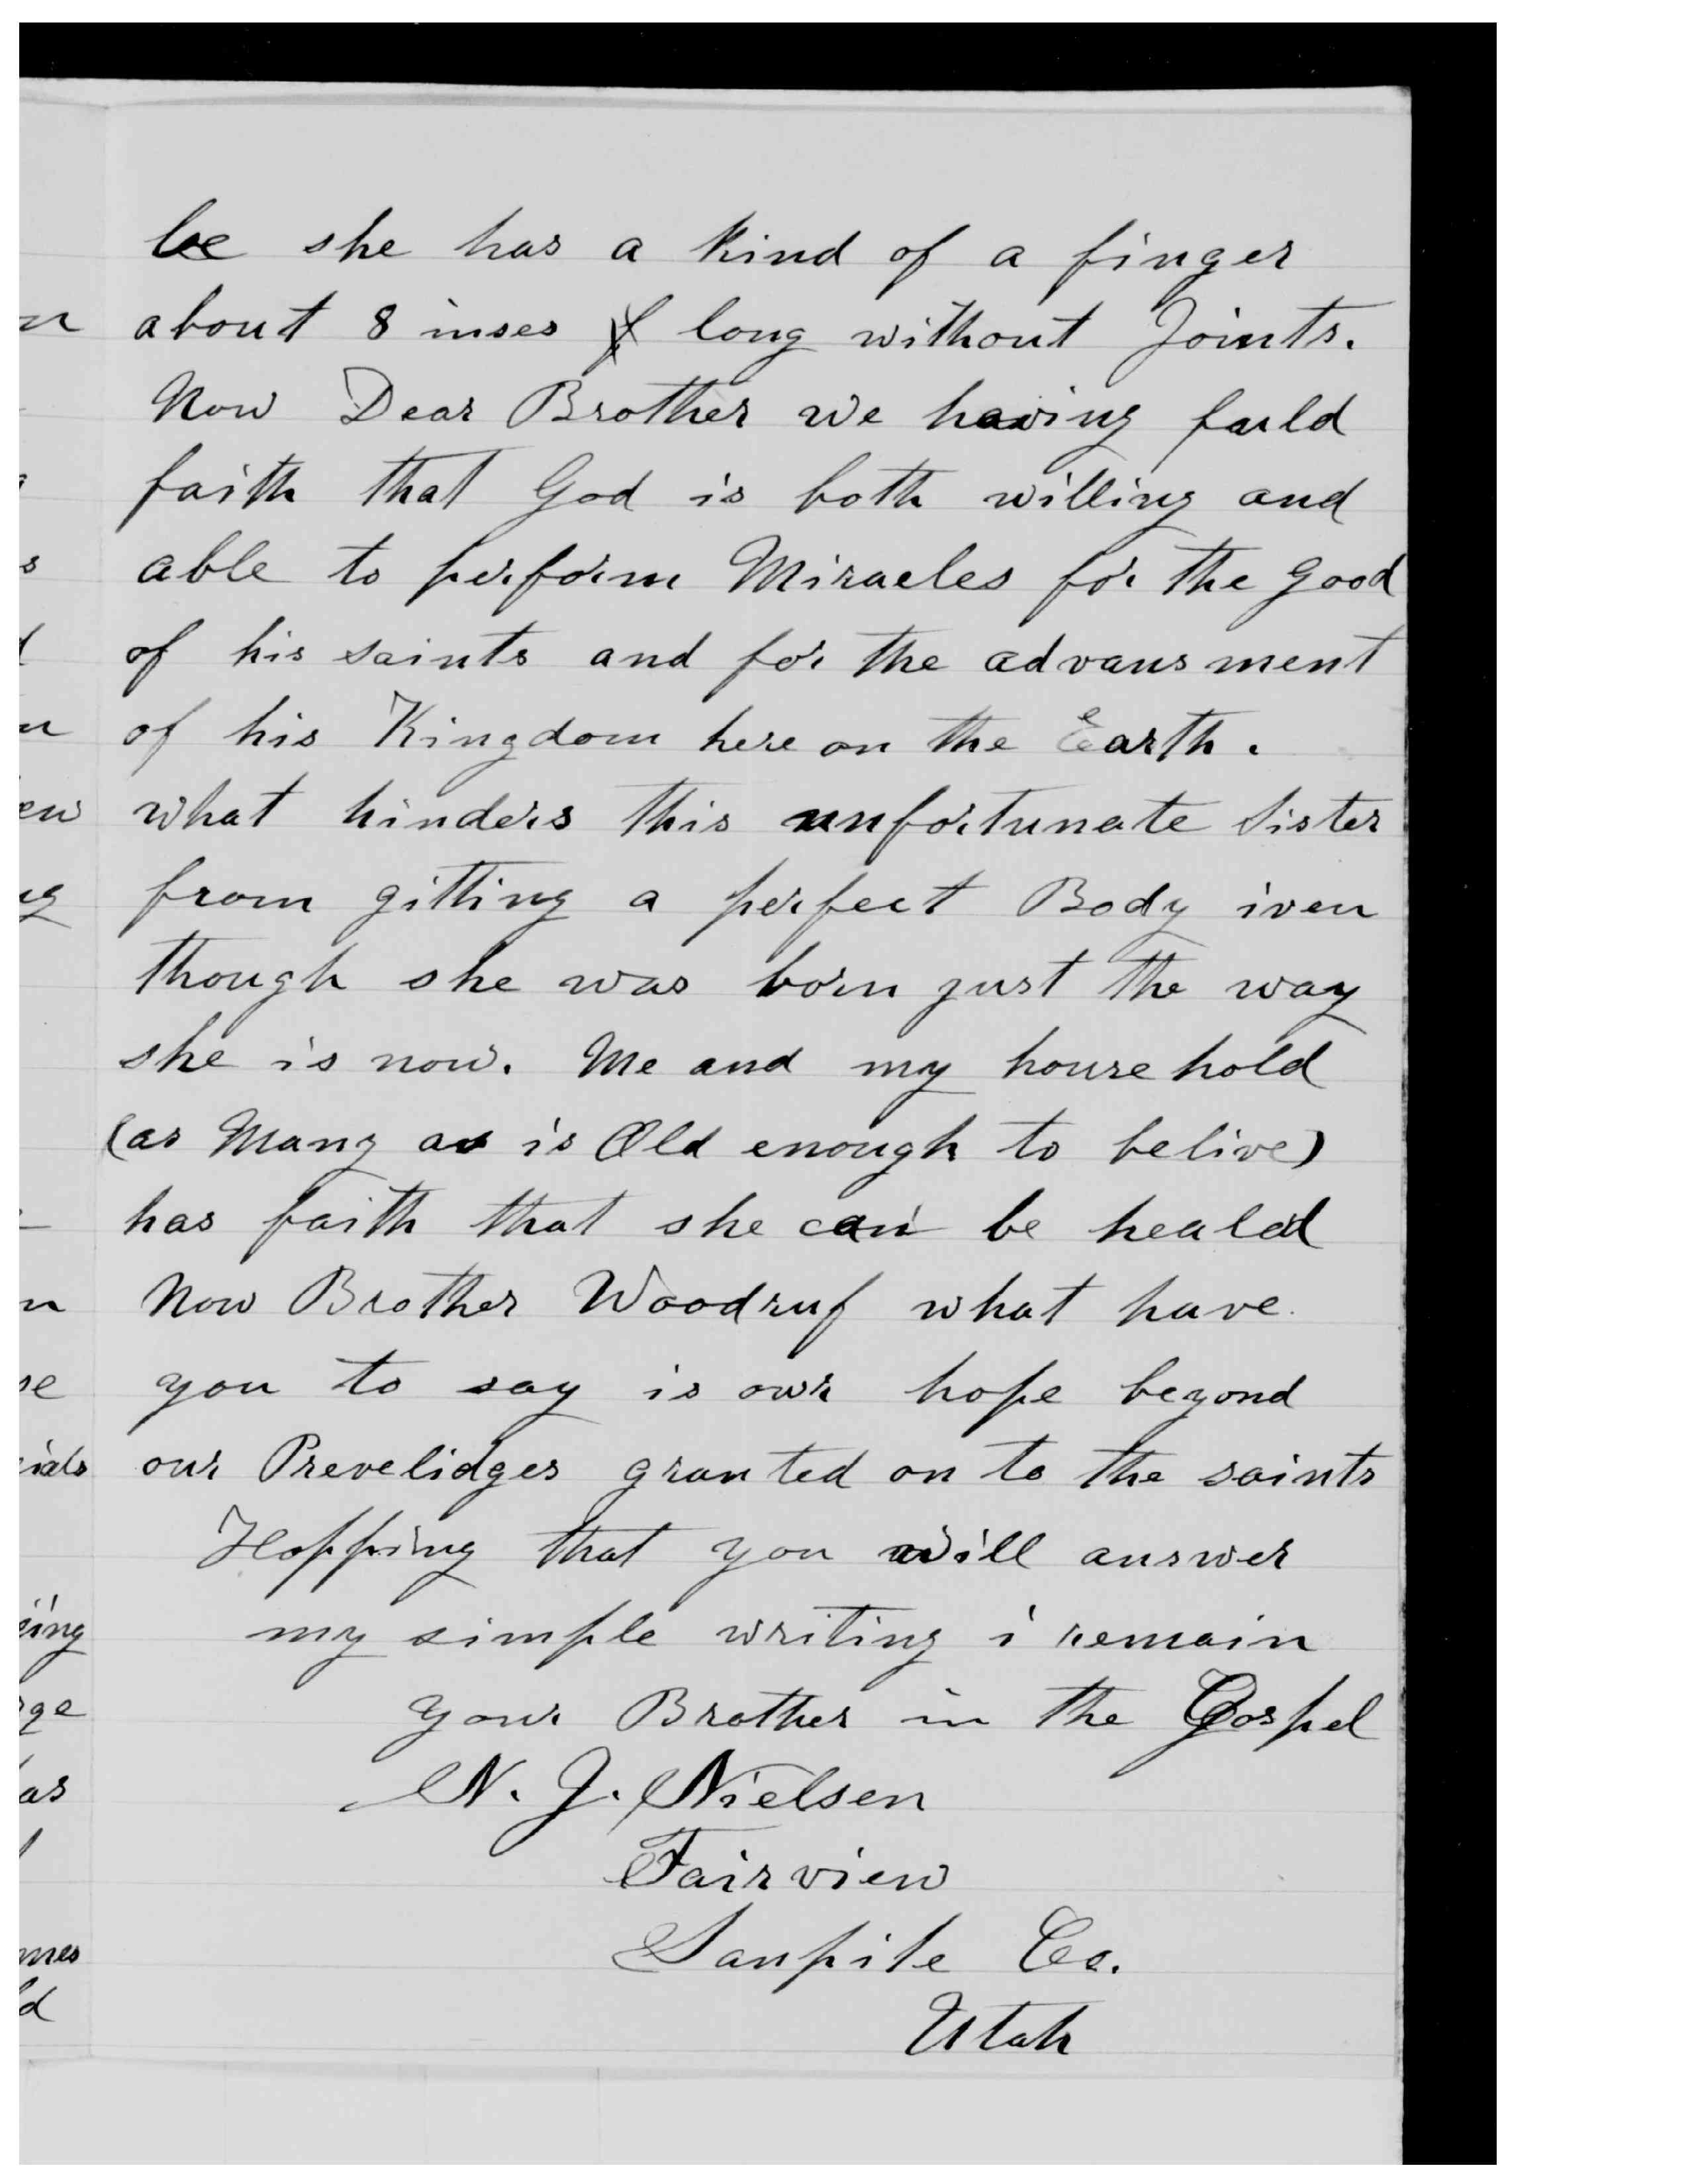 be she has a kind of a finger
about 8 inses long without Joints.
Now Dear Brother we having fuld
faith that God is both willing and
able to perform Miracles for the good
of his saints and for the advansment
of his Kingdom here on the Earth.
what hinders this unfortunate Sister
from gitting a perfect Body iven
though she was born just the way
she is now. Me and my house hold
(as Many as is Old enough to belive)
has faith that she can be heald
Now Brother Woodruf what have
you to say is owr hope beyond
our Prevelidges granted on to the saints
Hopping that you will answer
my simple writing i remain
your Brother in the Gospel
N. J. Nielsen
Fairview
Sanpite Co.
Utah